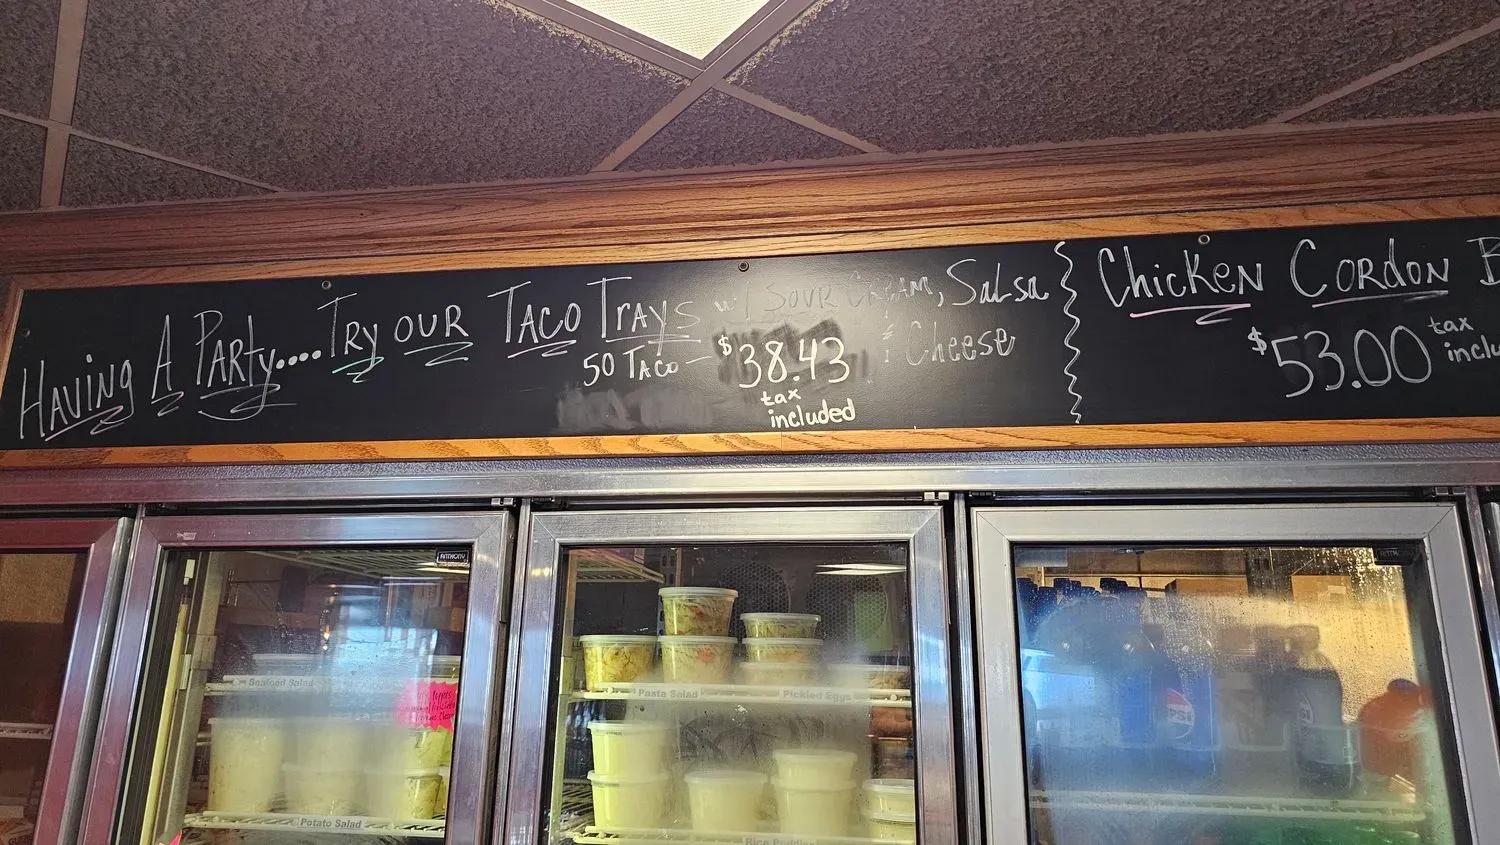 Having A Party.... Try our Taco Trays w/ Sour Cream, Salsa
50 Taco - $38.43 & Cheese
tax
included
Chicken Cordon B
$53.00 tax
inclu
ANTHONY
Seafood Salad
Potato Salad
Pasta Salad
Pickled Eggs
Rice Pudding